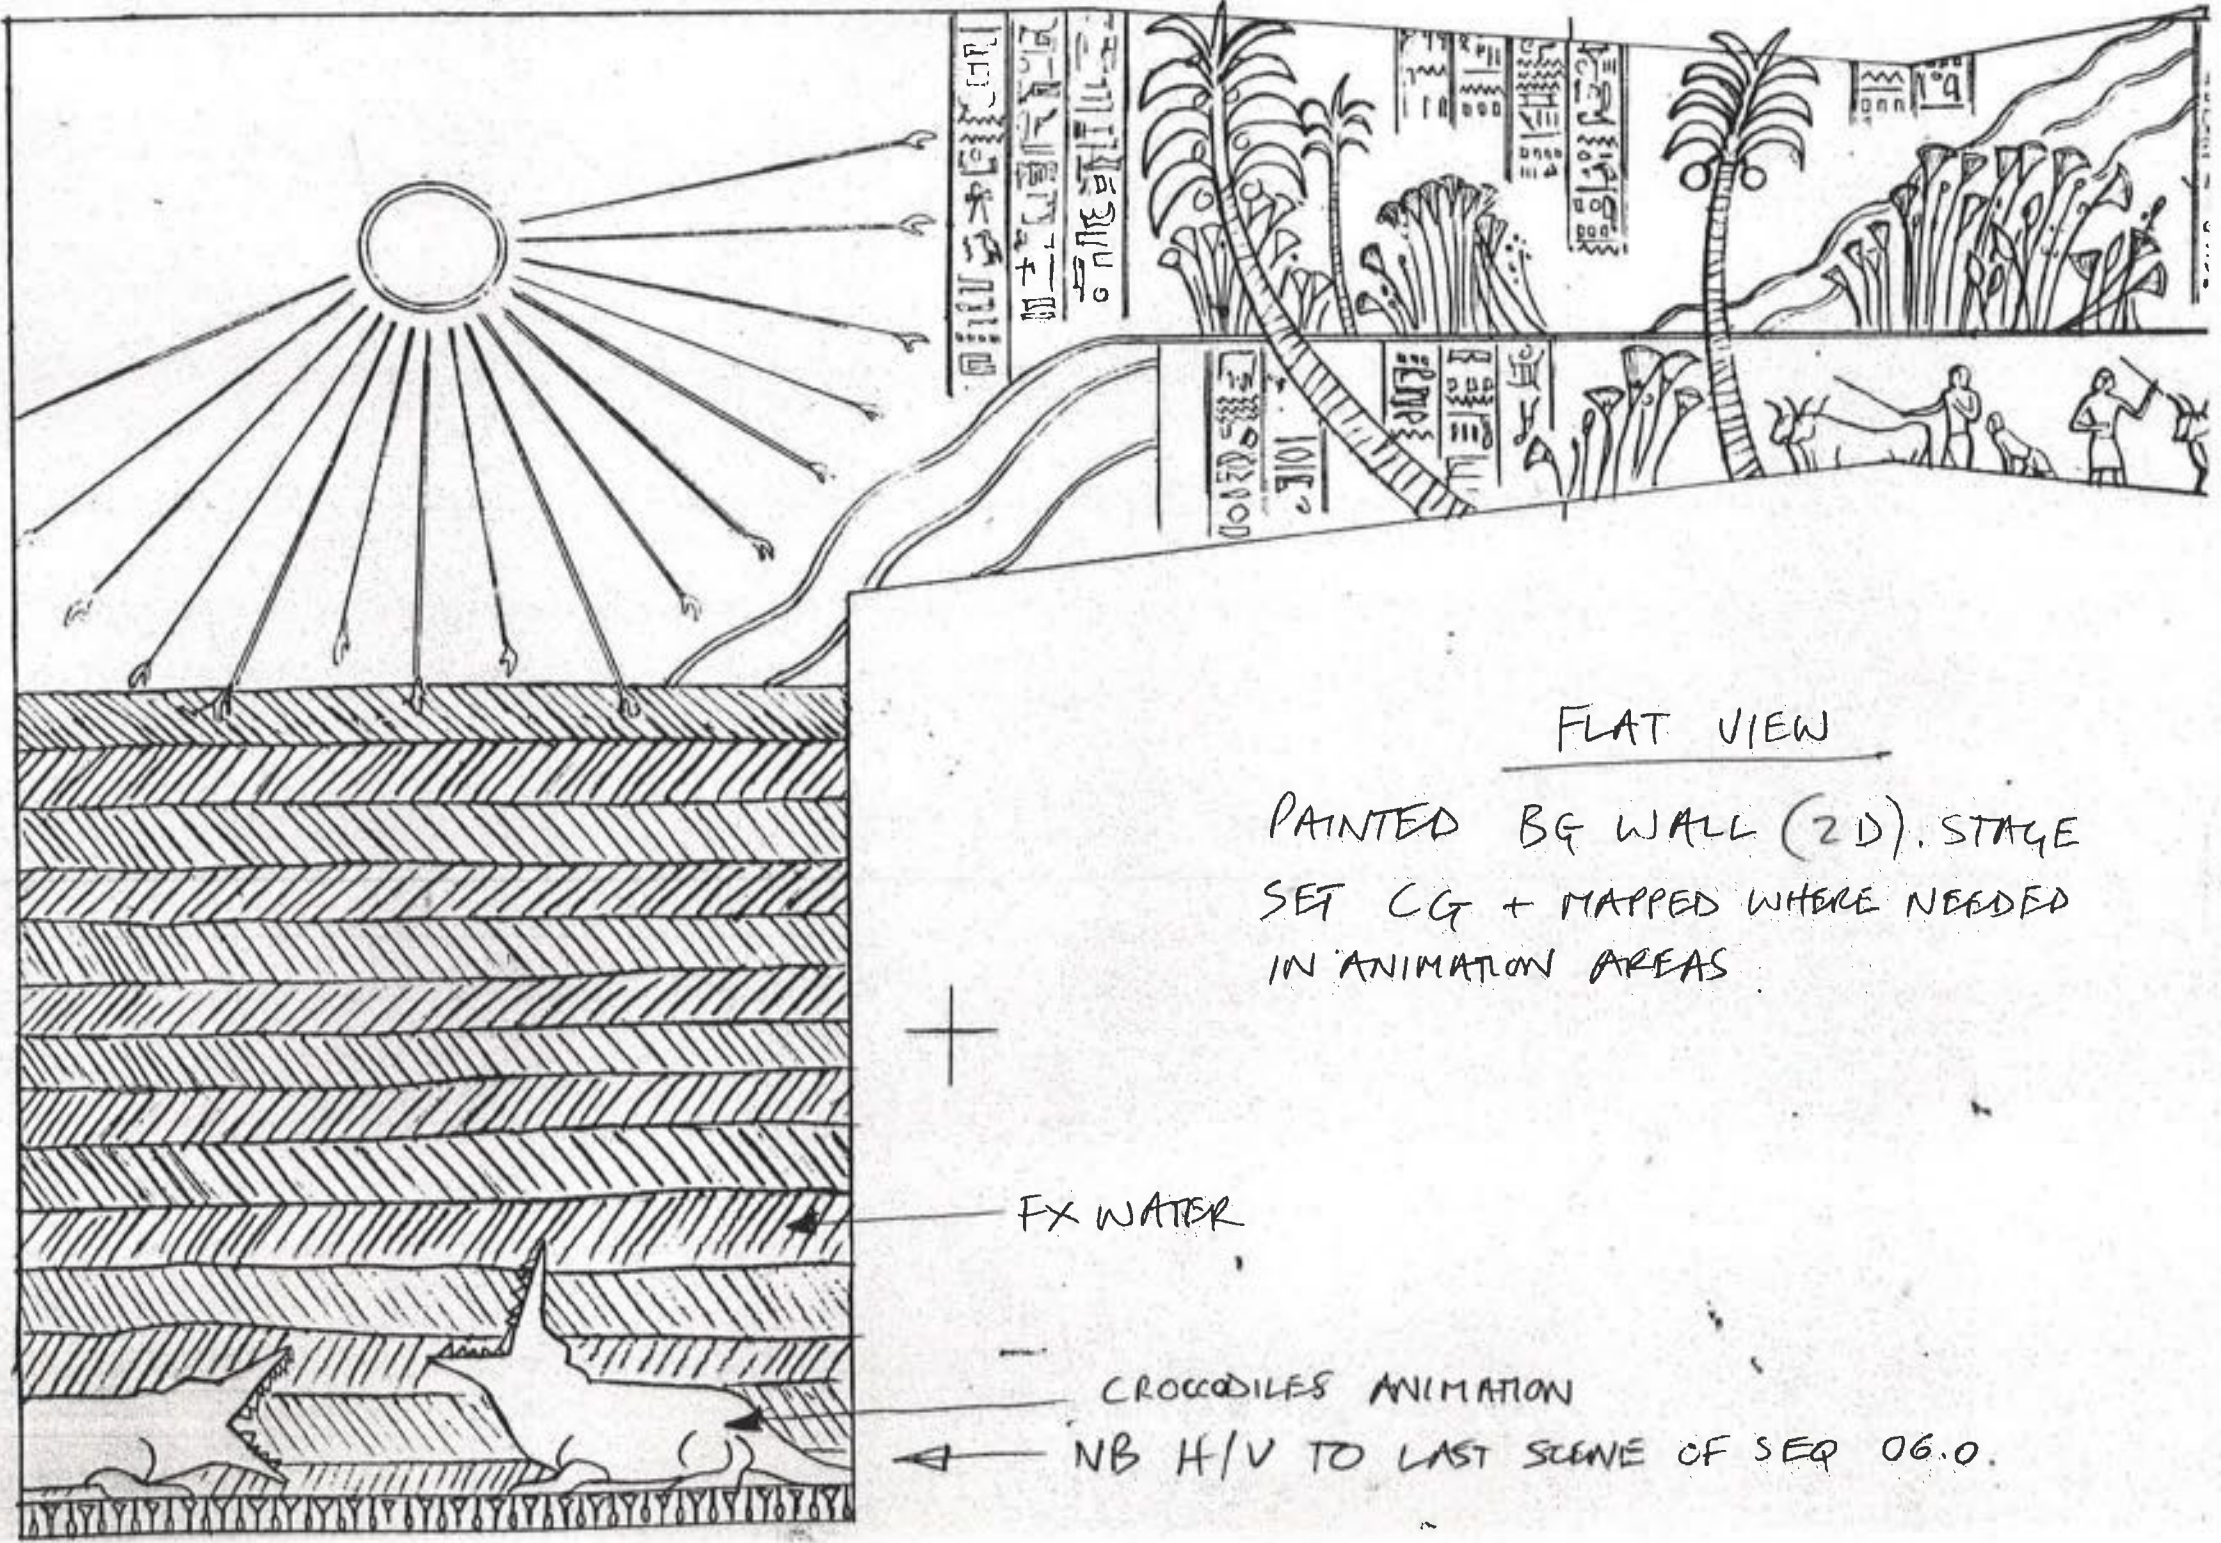 FLAT VIEW
PAINTED BG WALL (2D). STAGE
SET CG + MAPPED WHERE NEEDED
IN ANIMATION AREAS.
FX WATER
CROCCODILES ANIMATION
NB H/V TO LAST SCENE OF SEQ 06.0.